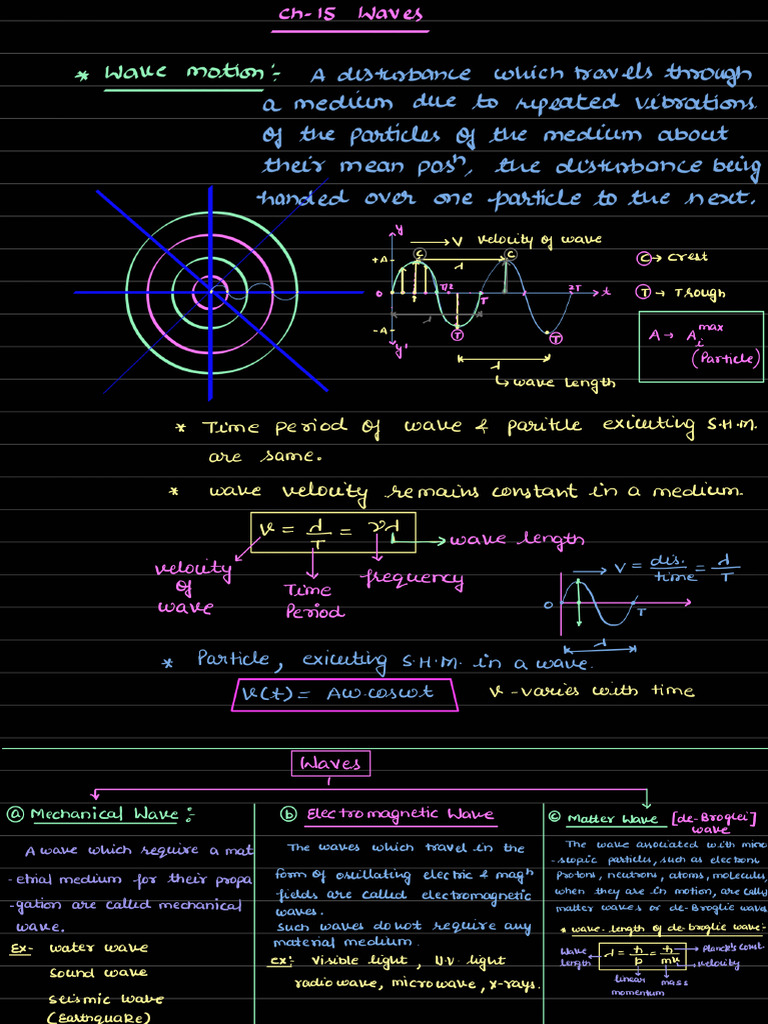 Ch-15 Waves
* Wave motion:- A disturbance which travels through
a medium due to repeated vibrations
of the particles of the medium about
their mean posⁿ, the disturbance being
handed over one particle to the next.
y
→ V velocity of wave
+A
C
C
λ
0
T/2
T
2T
t
λ
-A
y'
T
T
λ
↳ wave length
C → crest
T → Trough
A → Aᵢ max
(Particle)
* Time period of wave & paritcle exicuting S.H.M.
are same.
* wave velocity remains constant in a medium.
v = λ/T = νλ
→ wave length
velocity
of
wave
Time
Period
frequency
→ V = dis./time = λ/T
0
T
λ
* Particle, exicuting S.H.M. in a wave.
v(t) = Aω.cosωt
v - varies with time
Waves
(a) Mechanical Wave:-
A wave which require a mat
-erial medium for their propa
-gation are called mechanical
wave.
Ex- water wave
sound wave
seismic wave
(Earthquake)
(b) Electromagnetic Wave
The waves which travel in the
form of oscillating electric & magⁿ
fields are called electromagnetic
waves.
Such waves do not require any
material medium.
ex:- Visible light, U.V. light
radio wave, microwave, x-rays.
(c) Matter Wave [de-Broglei]
wave
The wave associated with micro
-scopic particles, such as electrons
Protons, neutrons, atoms, molecules,
when they are in motion, are called
matter waves or de-Broglie wave
* wave-length of de-broglie wave:-
Wave
length
λ = h/p = h/mv
Planck's const.
velocity
linear
momentum
mass